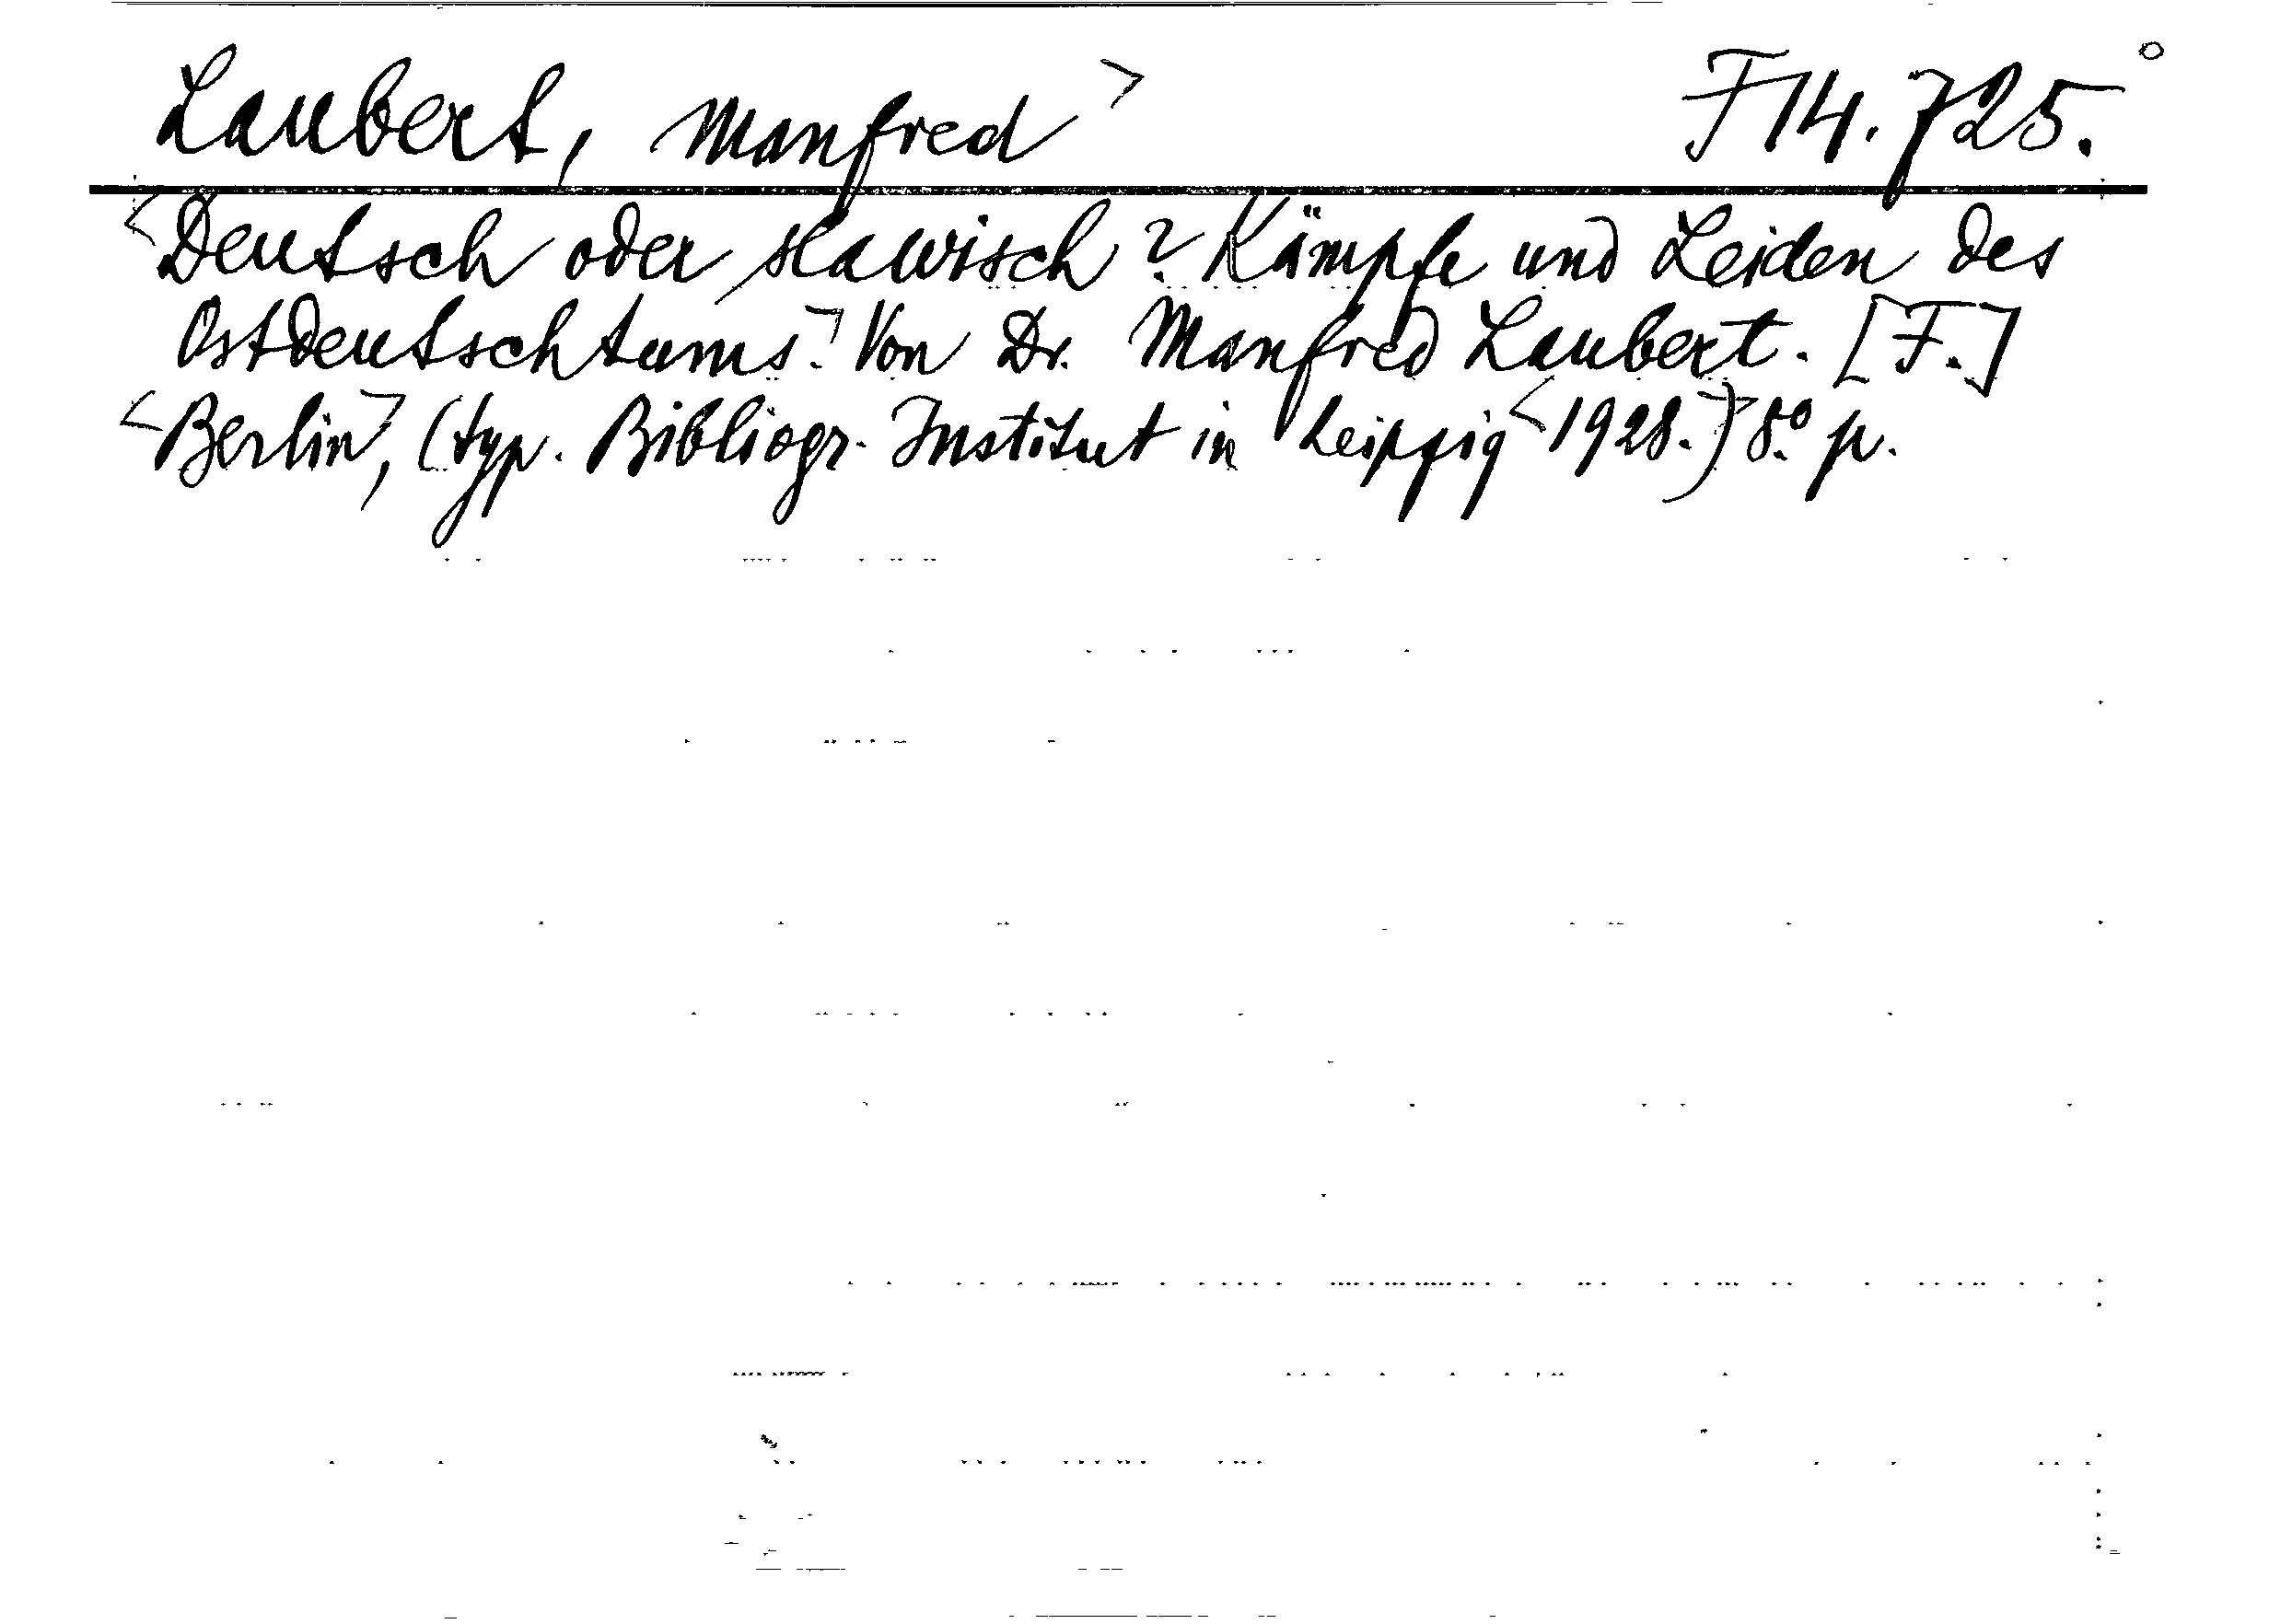 Laubert, Manfred> F 14.725.°
<Deutsch oder slawisch? Kämpfe und Leiden des
Ostdeutschtums.> Von Dr. Manfred Laubert. [F.]
<Berlin>, (typ. Bibliogr. Institut in Leipzig <1928.>) 8.° p.